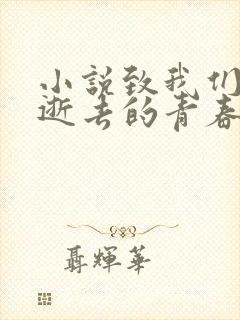 小說致我们
逝去的青春
聶輝華